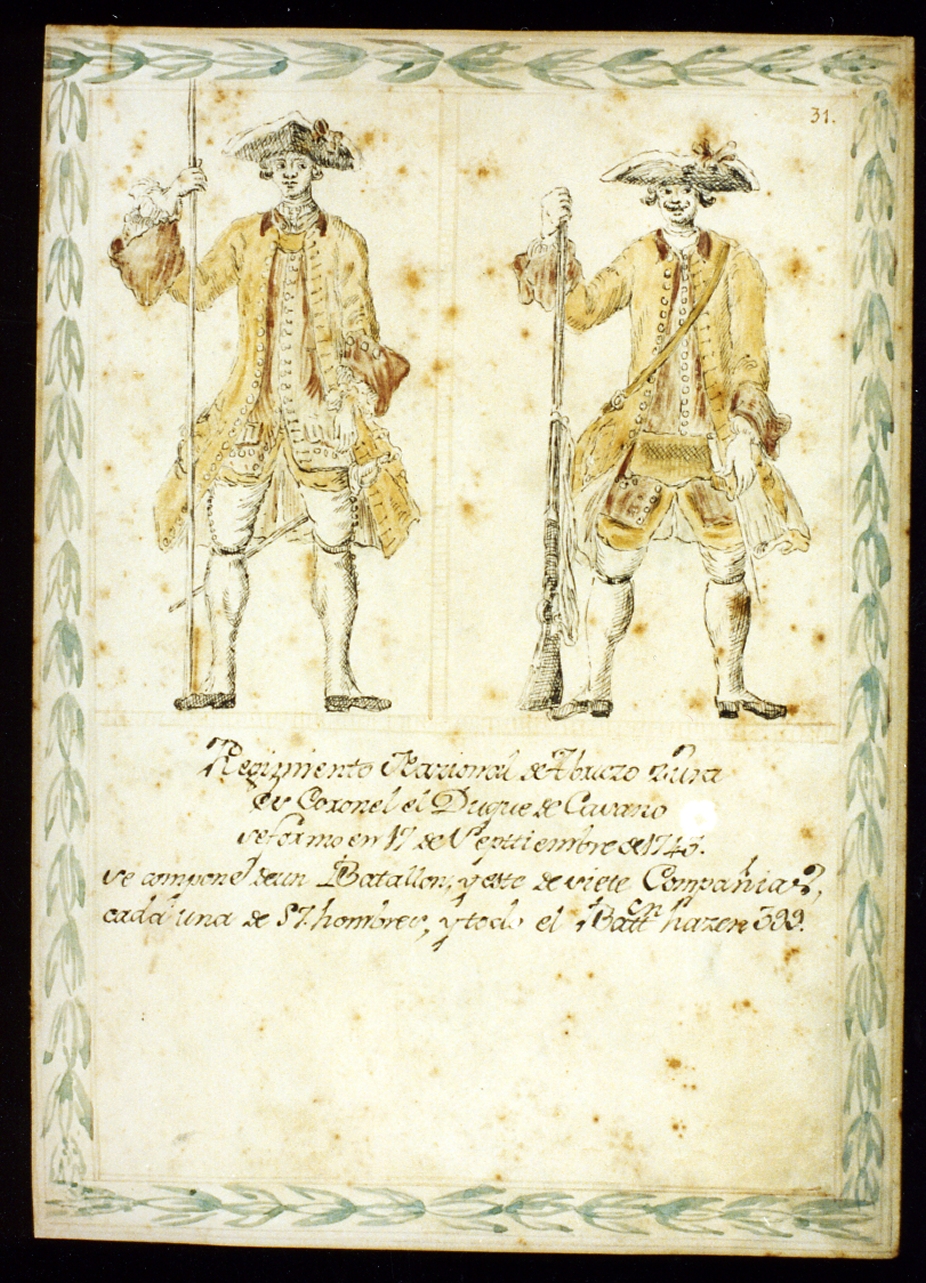 31.
Regizmiento Nazional de Abruzo
su Coronel el Duque de Cavano
se formo en 17 de Septtiembre de 1743.
se compone de un Batallon, y este de siete Compañias,
cada una de 57. hombres, y todo el Batt.on hazen 399.